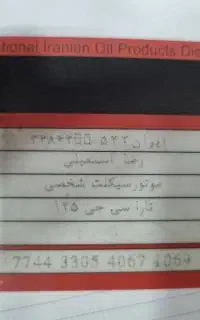 tional Iranian Oil Products Dis
ایران ۵۴۲
رضا اسمعیلی
موتورسیکلت شخصی
تارا سی جی ۱۲۵
7744 3305 4067 1069